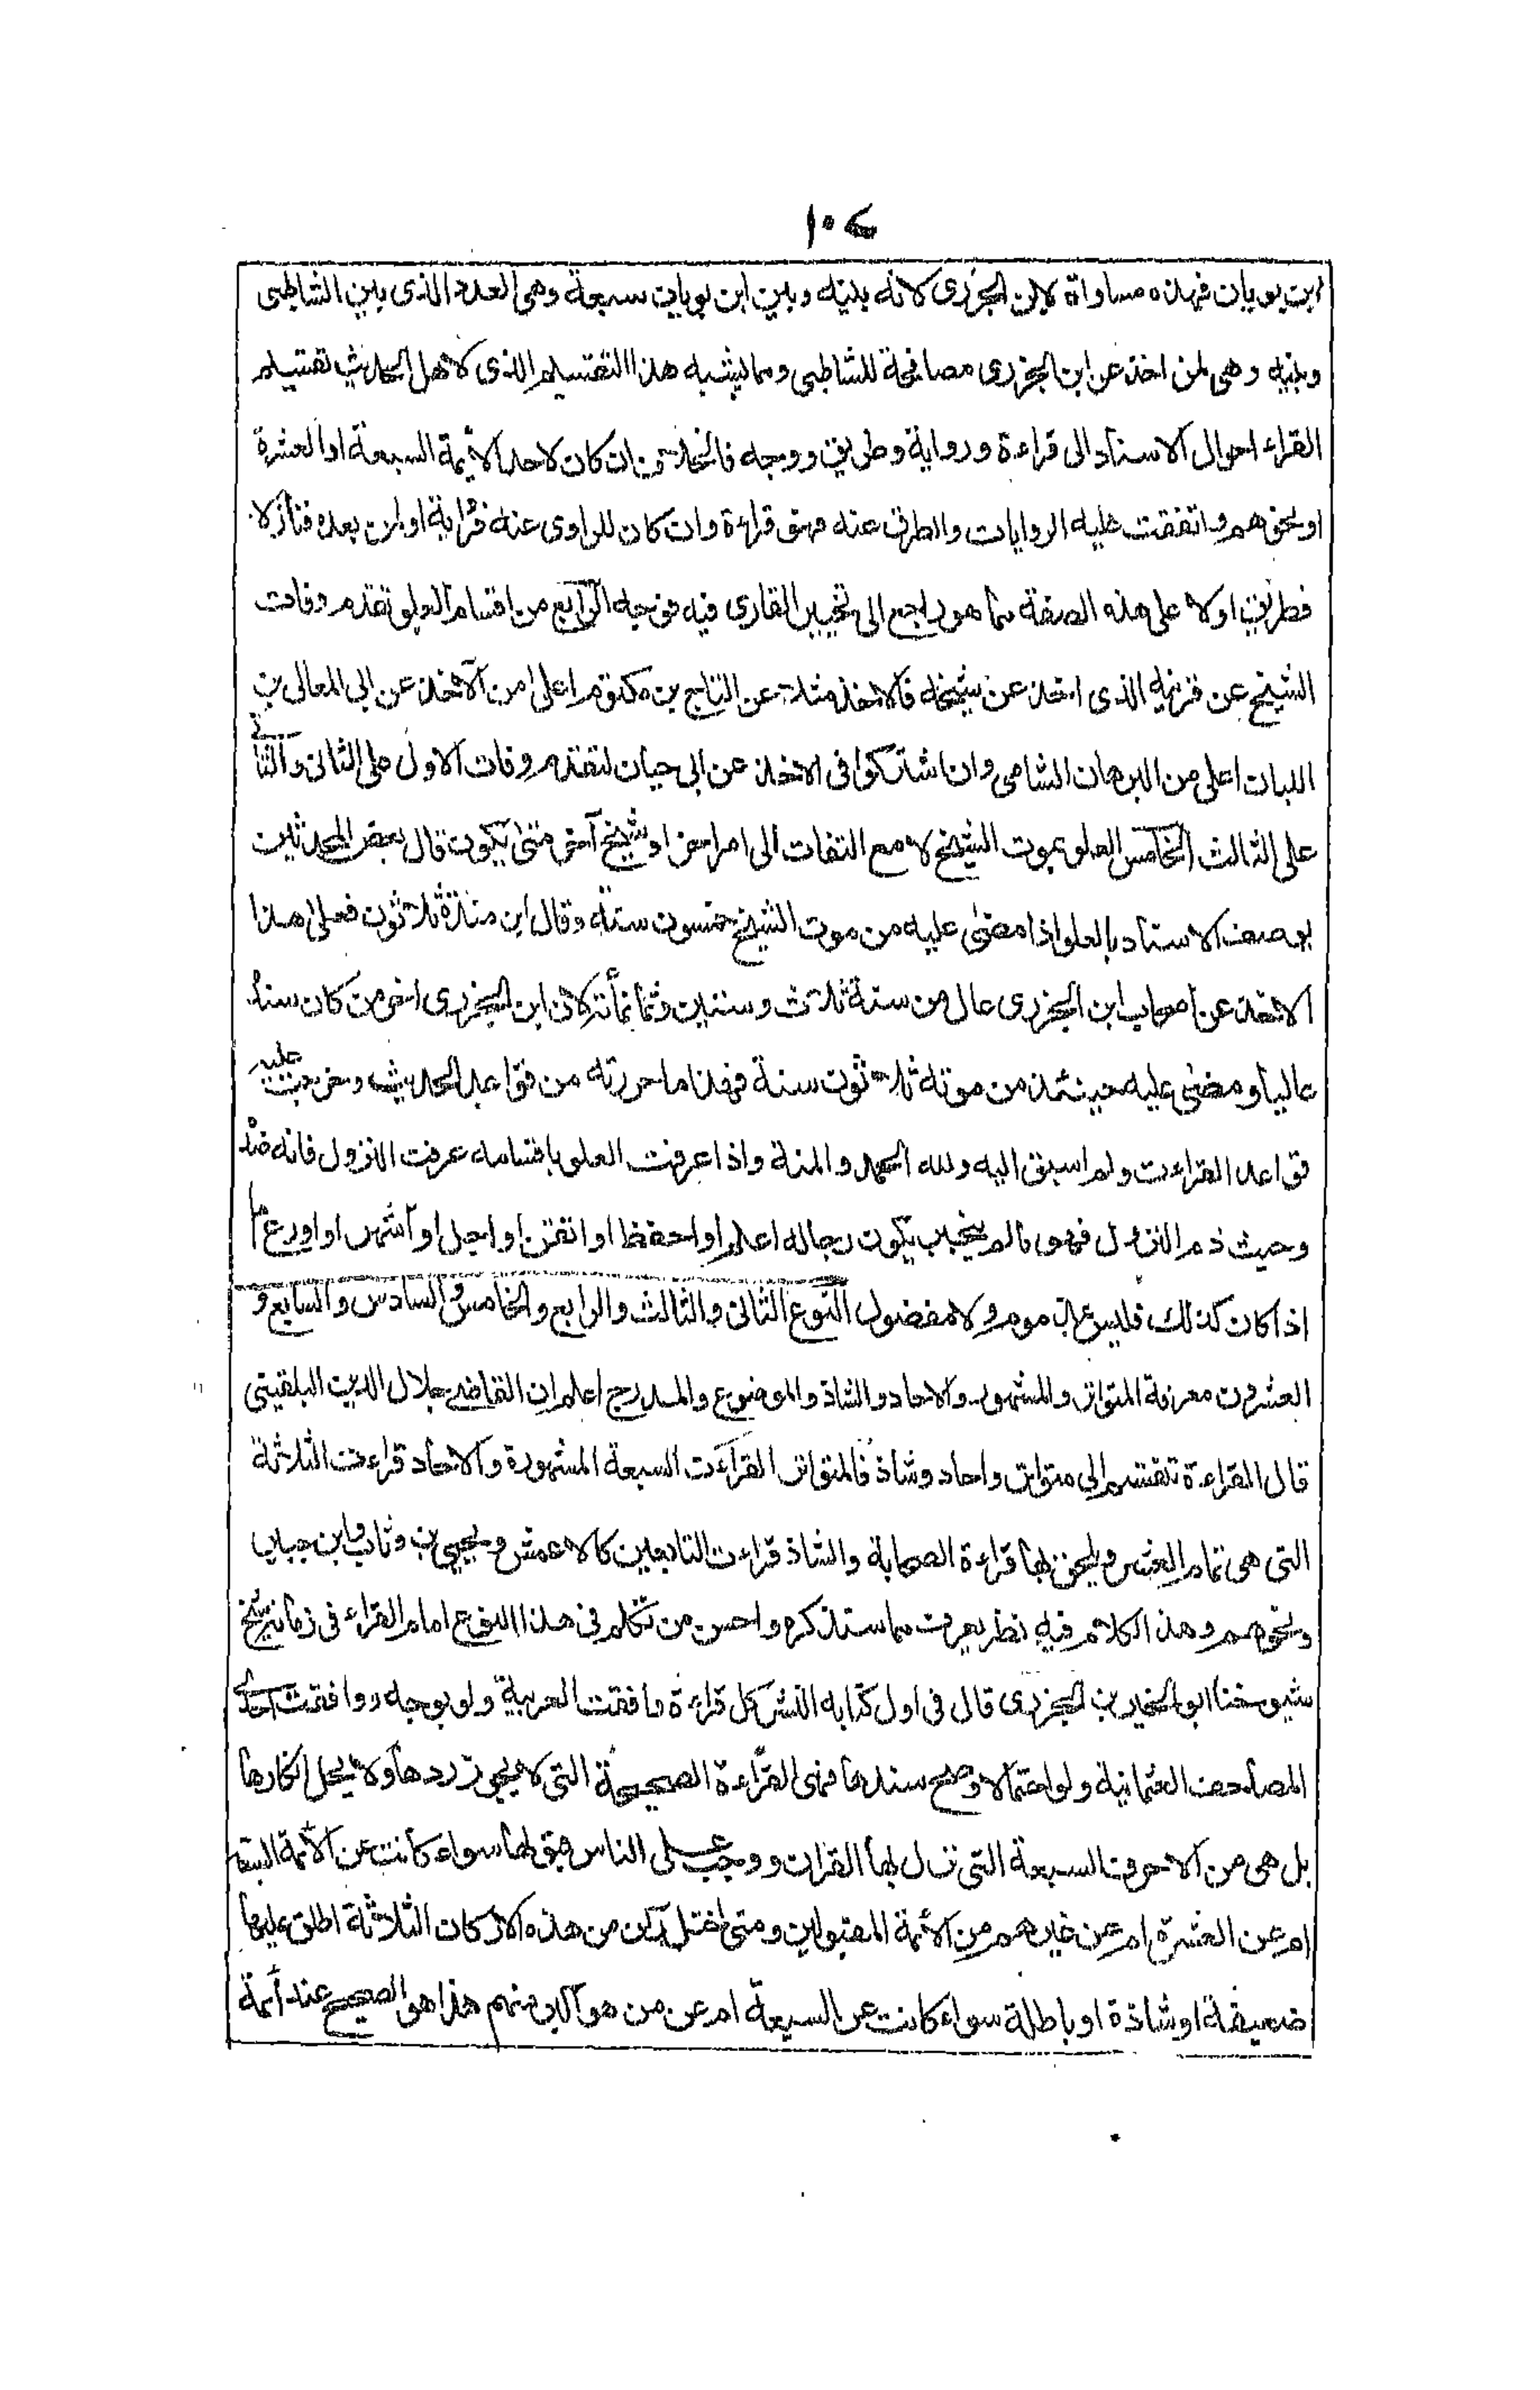 ١٠٧
ابن بويان فهذه مساواة لابن الجزرى لانه بينه وبين ابن بويان سبعة وهى العدد الذى بين الشاطبى
وبينه وهى لمن اخذ عن ابن الجزرى مصافحة للشاطبى ومما يشبه هذا التقسيم الذى لاهل الحديث تقسيم
القراء احوال الاسناد الى قراءة ورواية وطريق ووجه فالخلاف ان كان لاحد الأئمة السبعة او العشرة
او نحوهم واتفقت عليه الروايات والطرق عنه فهو قراءة وان كان للراوى عنه فرواية او لمن بعده فنازلا
فطريق اولا على هذه الصفة مما هو راجع الى تخيير القارى فيه فوجه الرابع من اقسام العلو تقدم وفات
الشيخ عن قرينه الذى اخذ عن شيخه فالاخذ مثلا عن التاج بن مكتوم اعلى من الآخذ عن ابى المعالى بن
اللبان اعلى من البرهان الشامى وان اشتركوا فى الاخذ عن ابى حيان لتقدم وفات الاول على الثانى والثانى
على الثالث الخامس العلو بموت الشيخ لا مع التفات الى امر اخر او شيخ آخر متى يكون قال بعض المحدثين
يوصف الاسناد بالعلو اذا مضى عليه من موت الشيخ خمسون سنة وقال ابن مندة ثلاثون فعلى هذا
الاخذ عن اصحاب ابن الجزرى عال من سنة ثلاث وستين وثمانمأته لان ابن الجزرى اخر من كان سنده
عاليا ومضى عليه حينئذ من موته ثلاثون سنة فهذا ما حررته من قواعد الحديث وخرجت عليه
قواعد القراءت ولم اسبق اليه ولله الحمد والمنة واذا عرفت العلو باقسامه عرفت النزول فانه ضد
وحيث ذم النزول فهو ما لم ينجبر بكون رجاله اعلم او احفظ او اتقن او اجل او اشهر او اورع اما
اذا كان كذلك فليس بمذموم ولا مفضول النوع الثانى والثالث والرابع والخامس والسادس والسابع و
العشرون معرفة المتواتر والمشهور والاحاد والشاذ والموضوع والمدرج اعلم ان القاضى جلال الدين البلقينى
قال القراءة تنقسم الى متواتر واحاد وشاذ فالمتواتر القراءت السبعة المشهورة والاحاد قراءت الثلاثة
التى هى تمام العشر ويلحق بها قراءة الصحابة والشاذ قراءت التابعين كالاعمش ويحيى بن وثاب وابن جبير
ونحوهم وهذا الكلام فيه نظر يعرف مما سنذكره واحسن من تكلم فى هذا النوع امام القراء فى زمانه شيخ
شيوخنا ابو الخير بن الجزرى قال فى اول كتابه النشر كل قراءة وافقت العربية ولو بوجه ووافقت احدى
المصاحف العثمانية ولو احتمالا وصح سندها فهى القراءة الصحيحة التى لا يجوز ردها ولا يحل انكارها
بل هى من الاحرف السبعة التى نزل بها القران ووجب على الناس قبولها سواء كانت عن الأئمة السبعة
ام عن العشرة ام عن غيرهم من الأئمة المقبولين ومتى اختل ركن من هذه الاركان الثلاثة اطلق عليها
ضعيفة او شاذة او باطلة سواء كانت عن السبعة ام عن من هو اكبر منهم هذا هو الصحيح عند أئمة